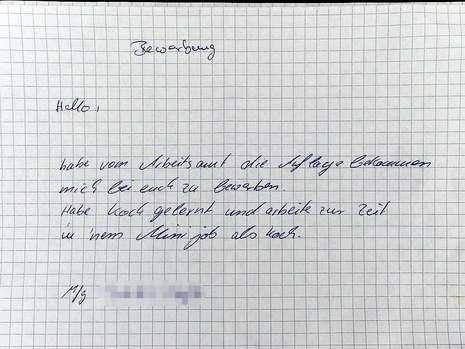 Bewerbung
Hallo,
habe vom Arbeitsamt die Auflage bekommen
mich bei euch zu bewerben.
Habe Koch gelernt und arbeite zur Zeit
in 'nem Minijob als Koch.
M/g